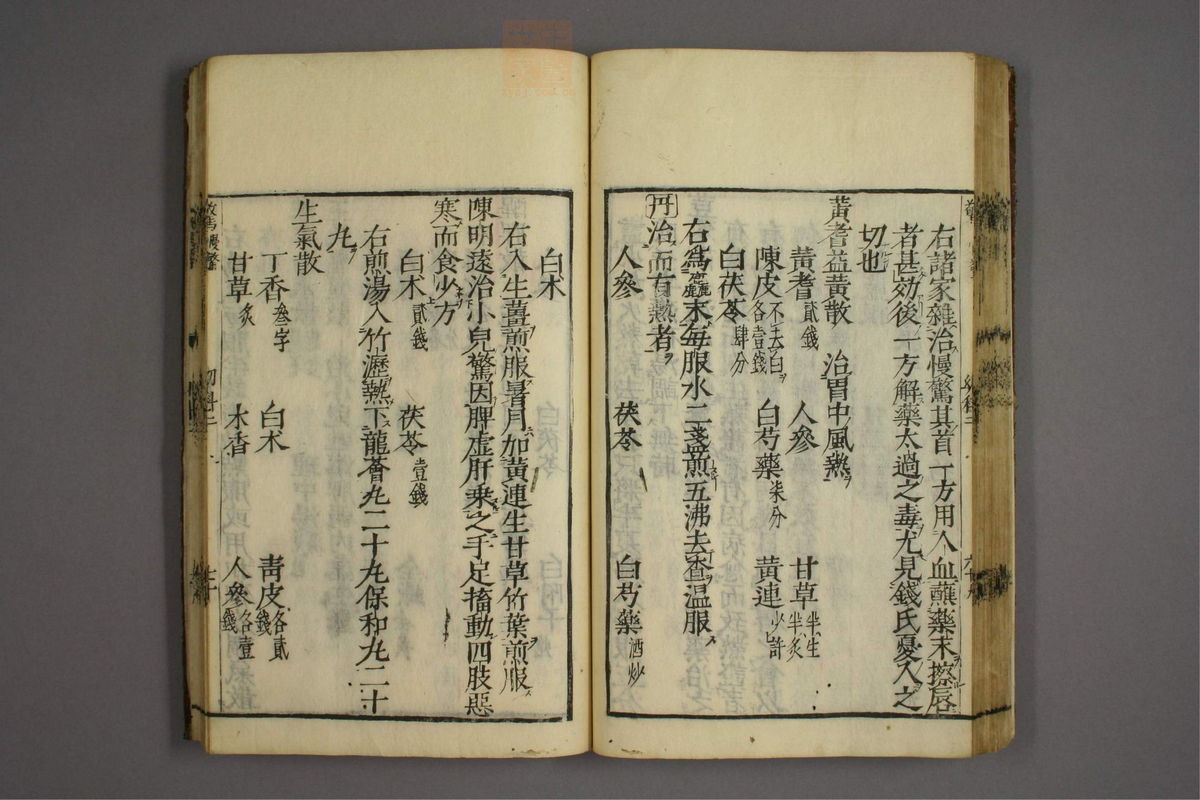 右諸家雜治慢驚其首一方用人血蘸藥末擦唇
者甚効後一方解藥太過之毒尤見錢氏憂人之
切也
黃耆益黃散　治胃中風熱
黃耆貳錢　人參　甘草半生半炙
陳皮不去白各壹錢　白芍藥柒分　黃連少許
白茯苓肆分
右爲麄末每服水二盞煎五沸去渣温服
丹治而有熱者
人參　茯苓　白芍藥酒炒
白朮
右入生薑煎服暑月加黃連生甘草竹葉煎服
陳明遠治小兒驚因脾虛肝乘之手足搐動四肢惡
寒而食少方
白朮貳錢　茯苓壹錢
右煎湯入竹瀝熱下龍薈丸二十丸保和丸二十
丸
生氣散
丁香叁字　白朮　青皮各貳錢
甘草炙　木香　人參各壹錢